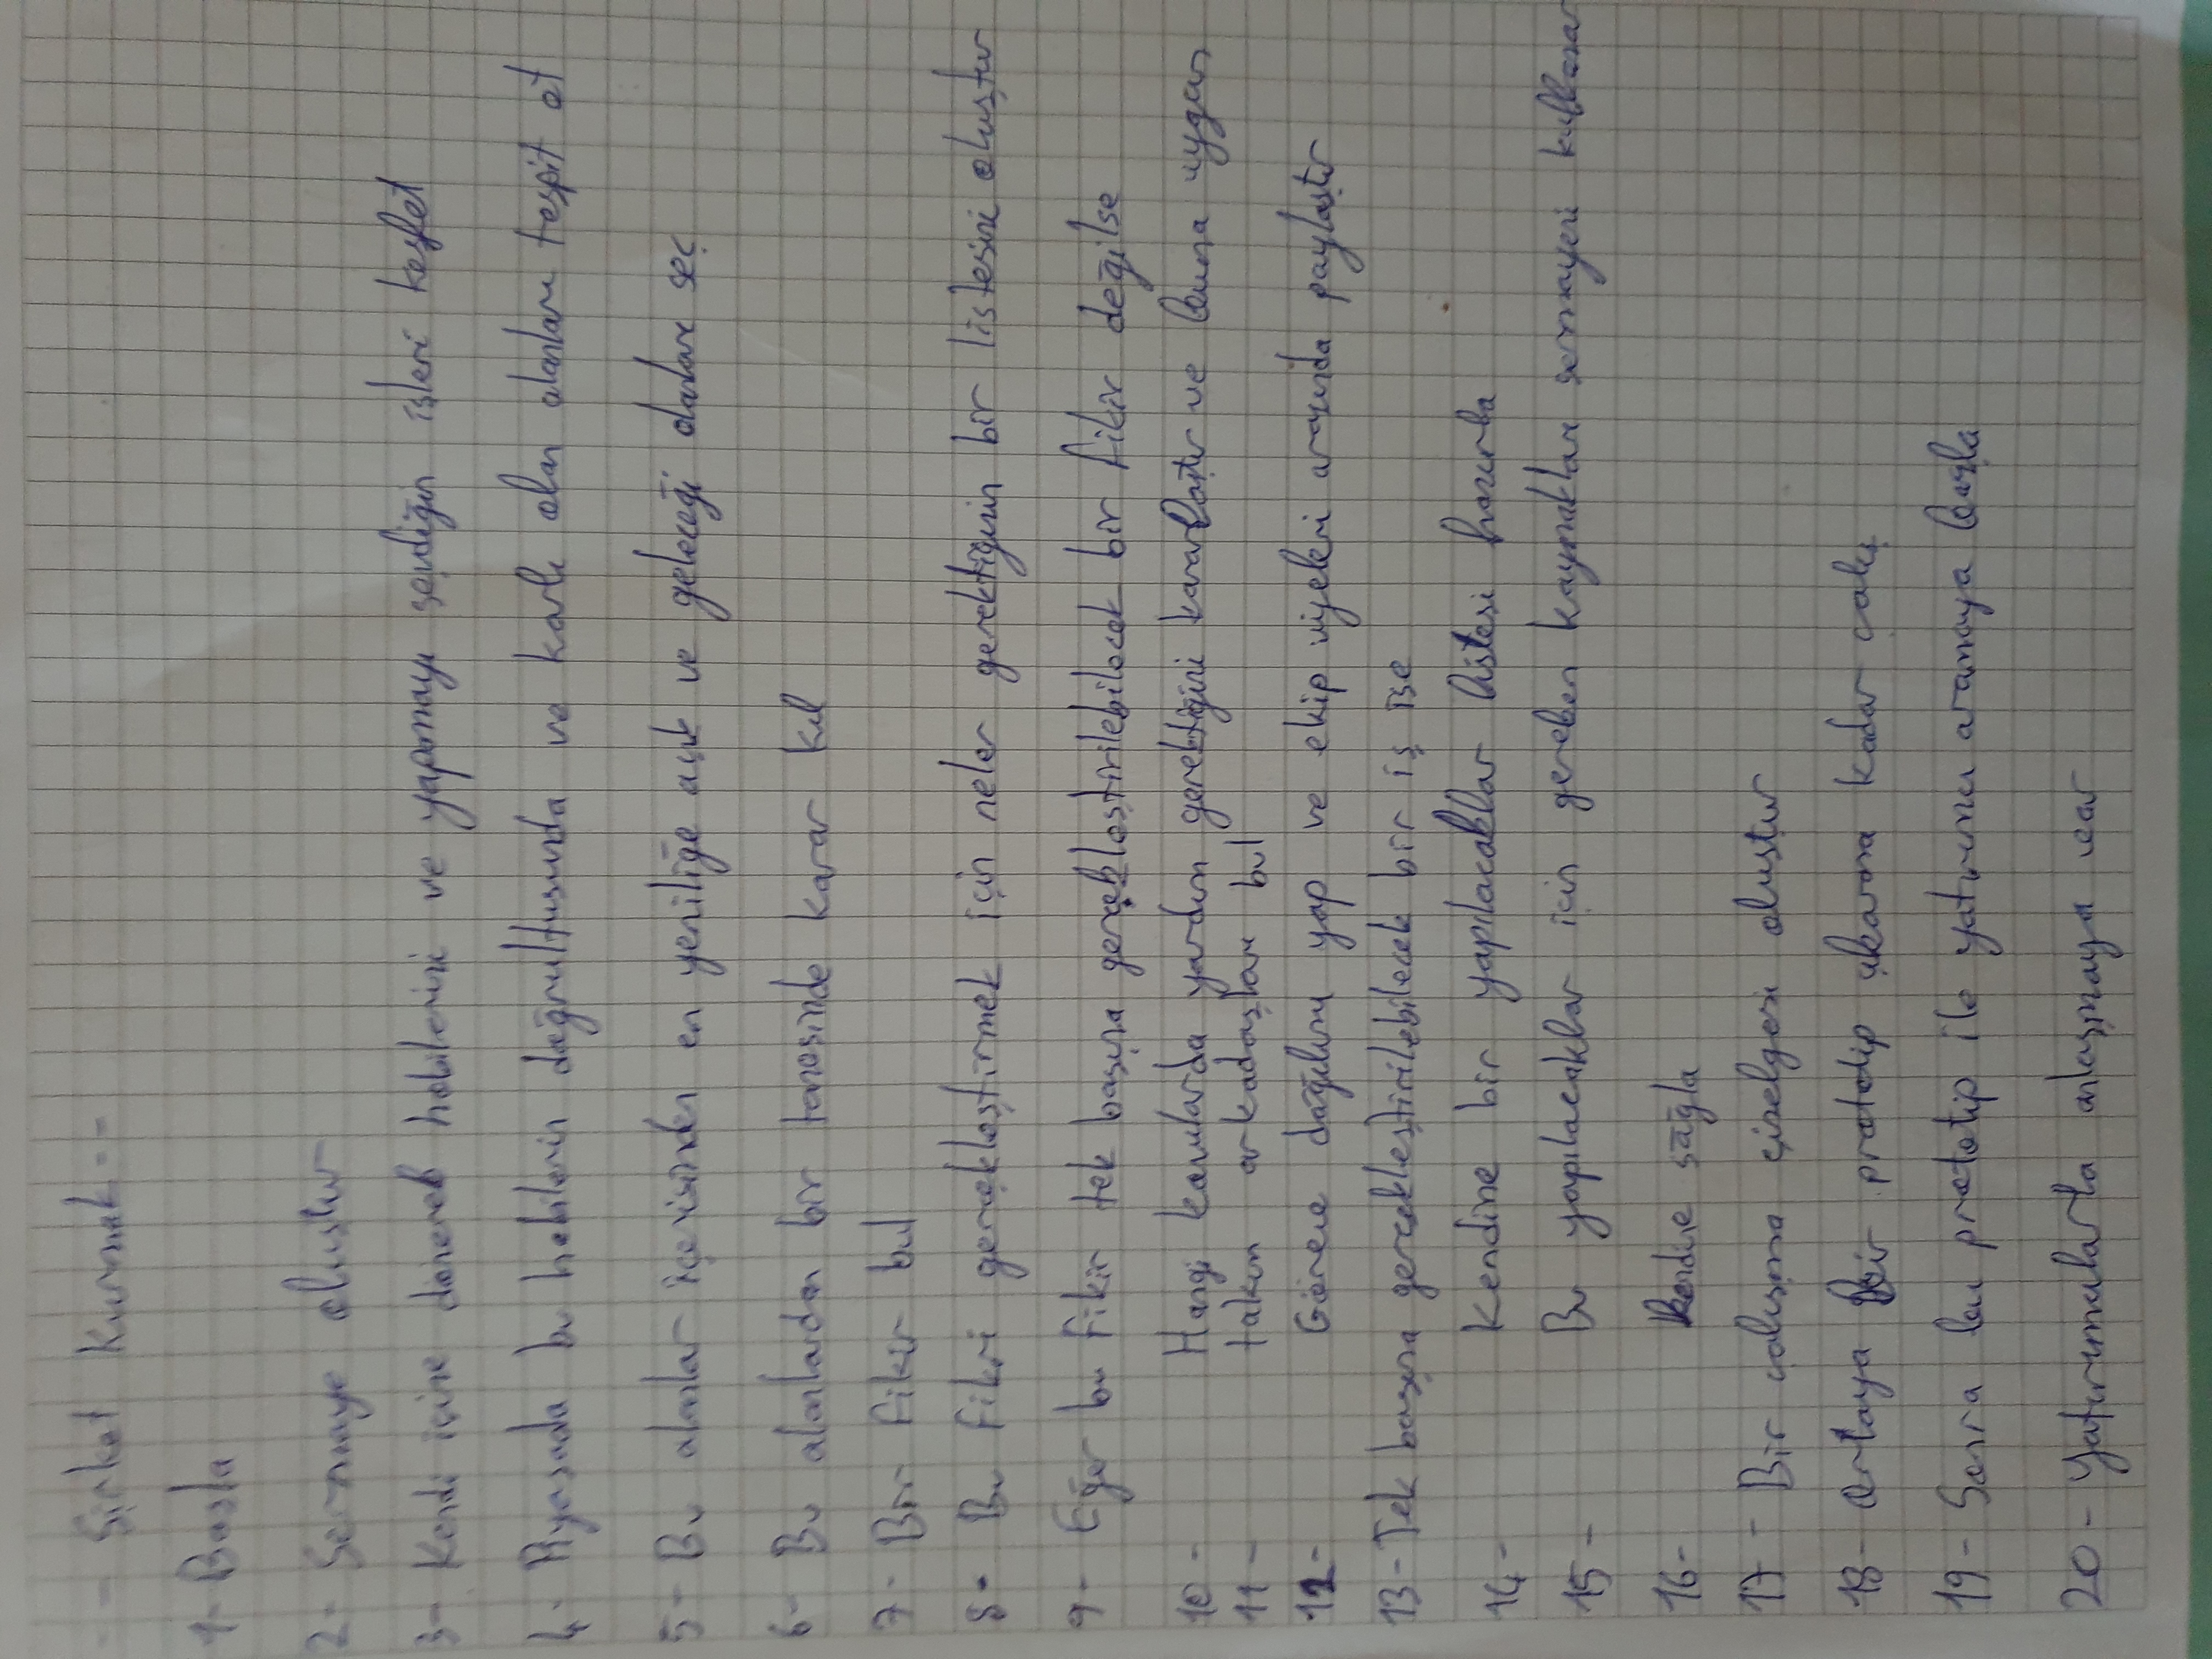 -- Şirket Kurmak --
1- Başla
2- Sermaye oluştur
3- Kendi içine dönerek hobilerini ve yapmayı sevdiğin işleri keşfet
4- Piyasada bu hobilerin doğrultusunda ve karlı olan alanları tespit et
5- Bu alanlar içerisinden en yeniliğe açık ve geleceği olanları seç
6- Bu alanlardan bir tanesinde karar kıl
7- Bir fikir bul
8- Bu fikri gerçekleştirmek için neler gerektiğinin bir listesini oluştur
9- Eğer bu fikir tek başına gerçekleştirilebilecek bir fikir değilse
10- Hangi konularda yardım gerektiğini kararlaştır ve buna uygun
11- takım arkadaşları bul
12- Görev dağılımı yap ve ekip üyeleri arasında paylaştır
13- Tek başına gerçekleştirilebilecek bir iş ise
14- Kendine bir yapılacaklar listesi hazırla
15- Bu yapılacaklar için gereken kaynakları sermayeni kullanar
16- kendine sağla
17- Bir çalışma çizelgesi oluştur
18- Ortaya bir prototip çıkarana kadar çalış
19- Sonra bu prototip ile yatırımcı aramaya başla
20- Yatırımcılarla anlaşmaya var